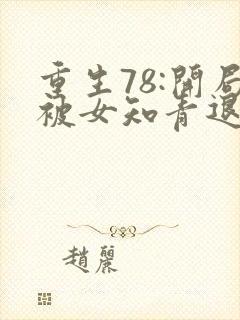 重生78:開局
被女知青退
趙麗